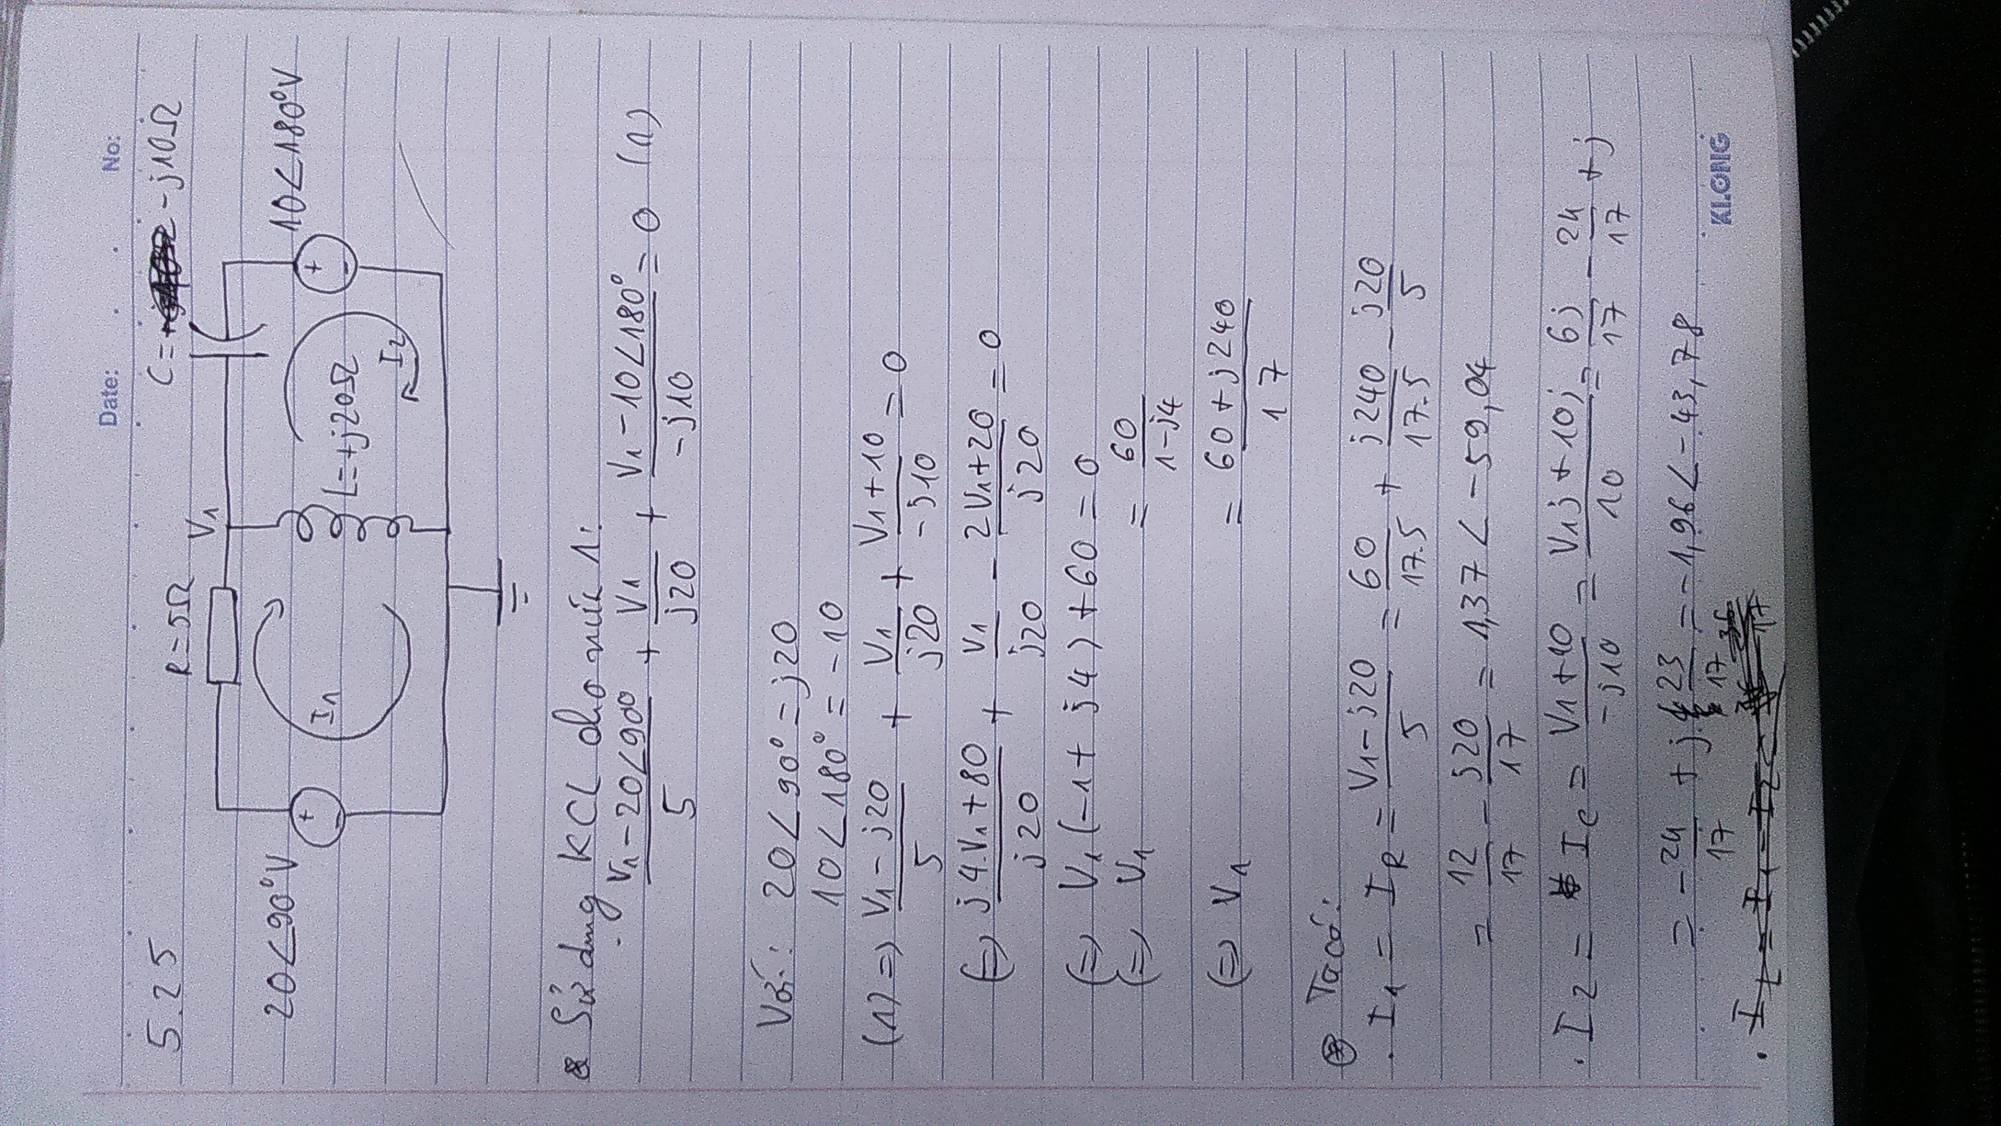 Date: No:
5.25
R=5Ω V₁ C= -j10Ω
20∠90°V I₁ L=+j20Ω I₂ 10∠180°V
+ - + -
Sử dụng KCL cho nút 1:
(V₁-20∠90°)/5 + V₁/j20 + (V₁-10∠180°)/-j10 = 0 (1)
Với: 20∠90°=j20
10∠180°=-10
(1) => (V₁-j20)/5 + V₁/j20 + (V₁+10)/-j10 = 0
(=) (j4.V₁+80)/j20 + V₁/j20 - (2V₁+20)/j20 = 0
(=) V₁(-1+j4)+60=0
(=) V₁ = 60/(1-j4)
(=) V₁ = (60+j240)/17
Ta có:
. I₁ = I_R = (V₁-j20)/5 = 60/17.5 + j240/17.5 - j20/5
= 12/17 - j20/17 = 1,37∠-59,04
. I₂ = I_C = (V₁+10)/-j10 = (V₁j+10j)/10 = 6j/17 - 24/17 + j
= -24/17 + j23/17 = -1,96∠-43,78
KLONG